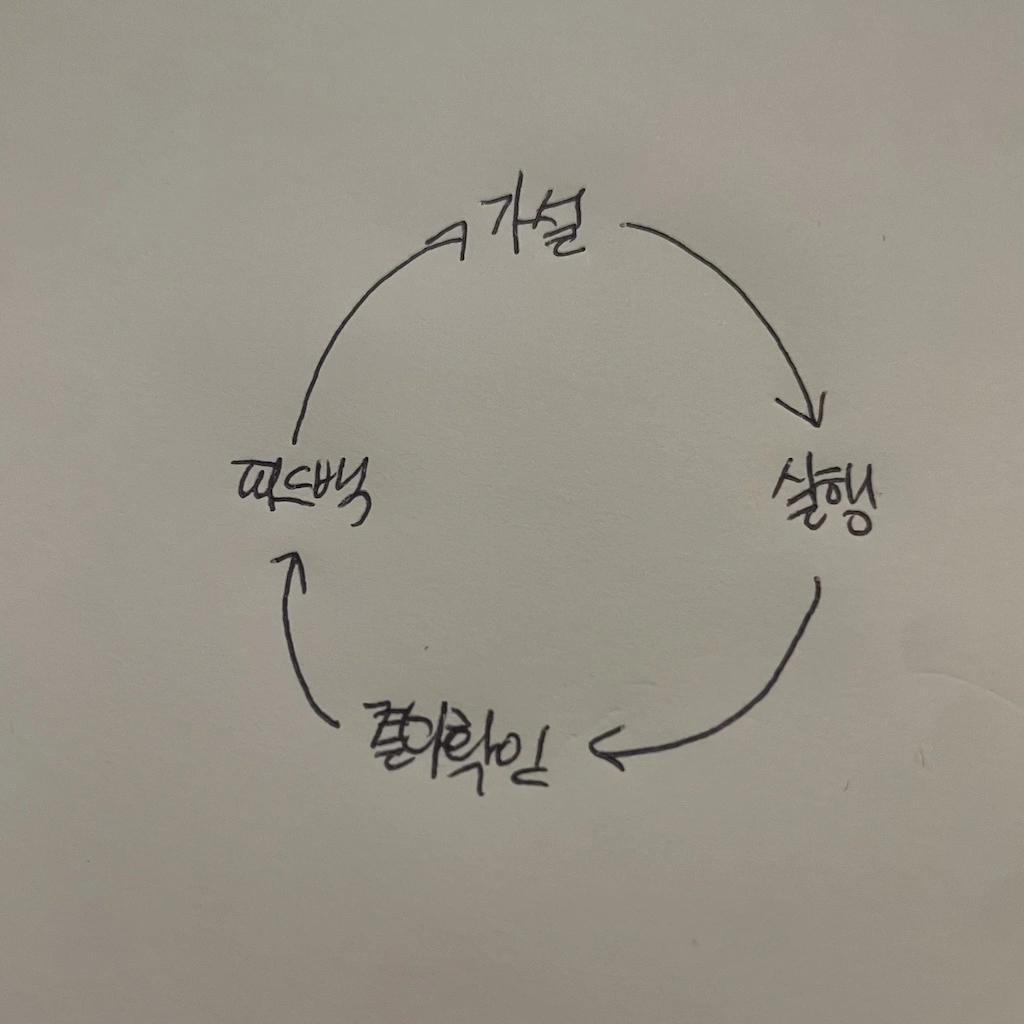 가설
실행
결과확인
피드백